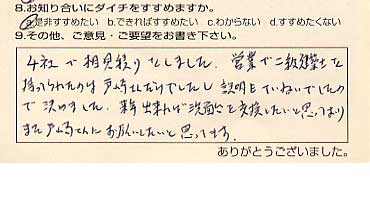 8.お知り合いにダイチをすすめますか。
a.是非すすめたい b.できればすすめたい c.わからない d.すすめたくない
9.その他、ご意見・ご要望をお書き下さい。
4社で相見積りをしました。営業で二級建築士を
持ってられたのは戸崎さんだけでしたし説明もていねいでしたの
で決めました。来年出来れば洗面台を交換したいと思っており
また戸崎さんにお願いしたいと思ってます。
ありがとうございました。